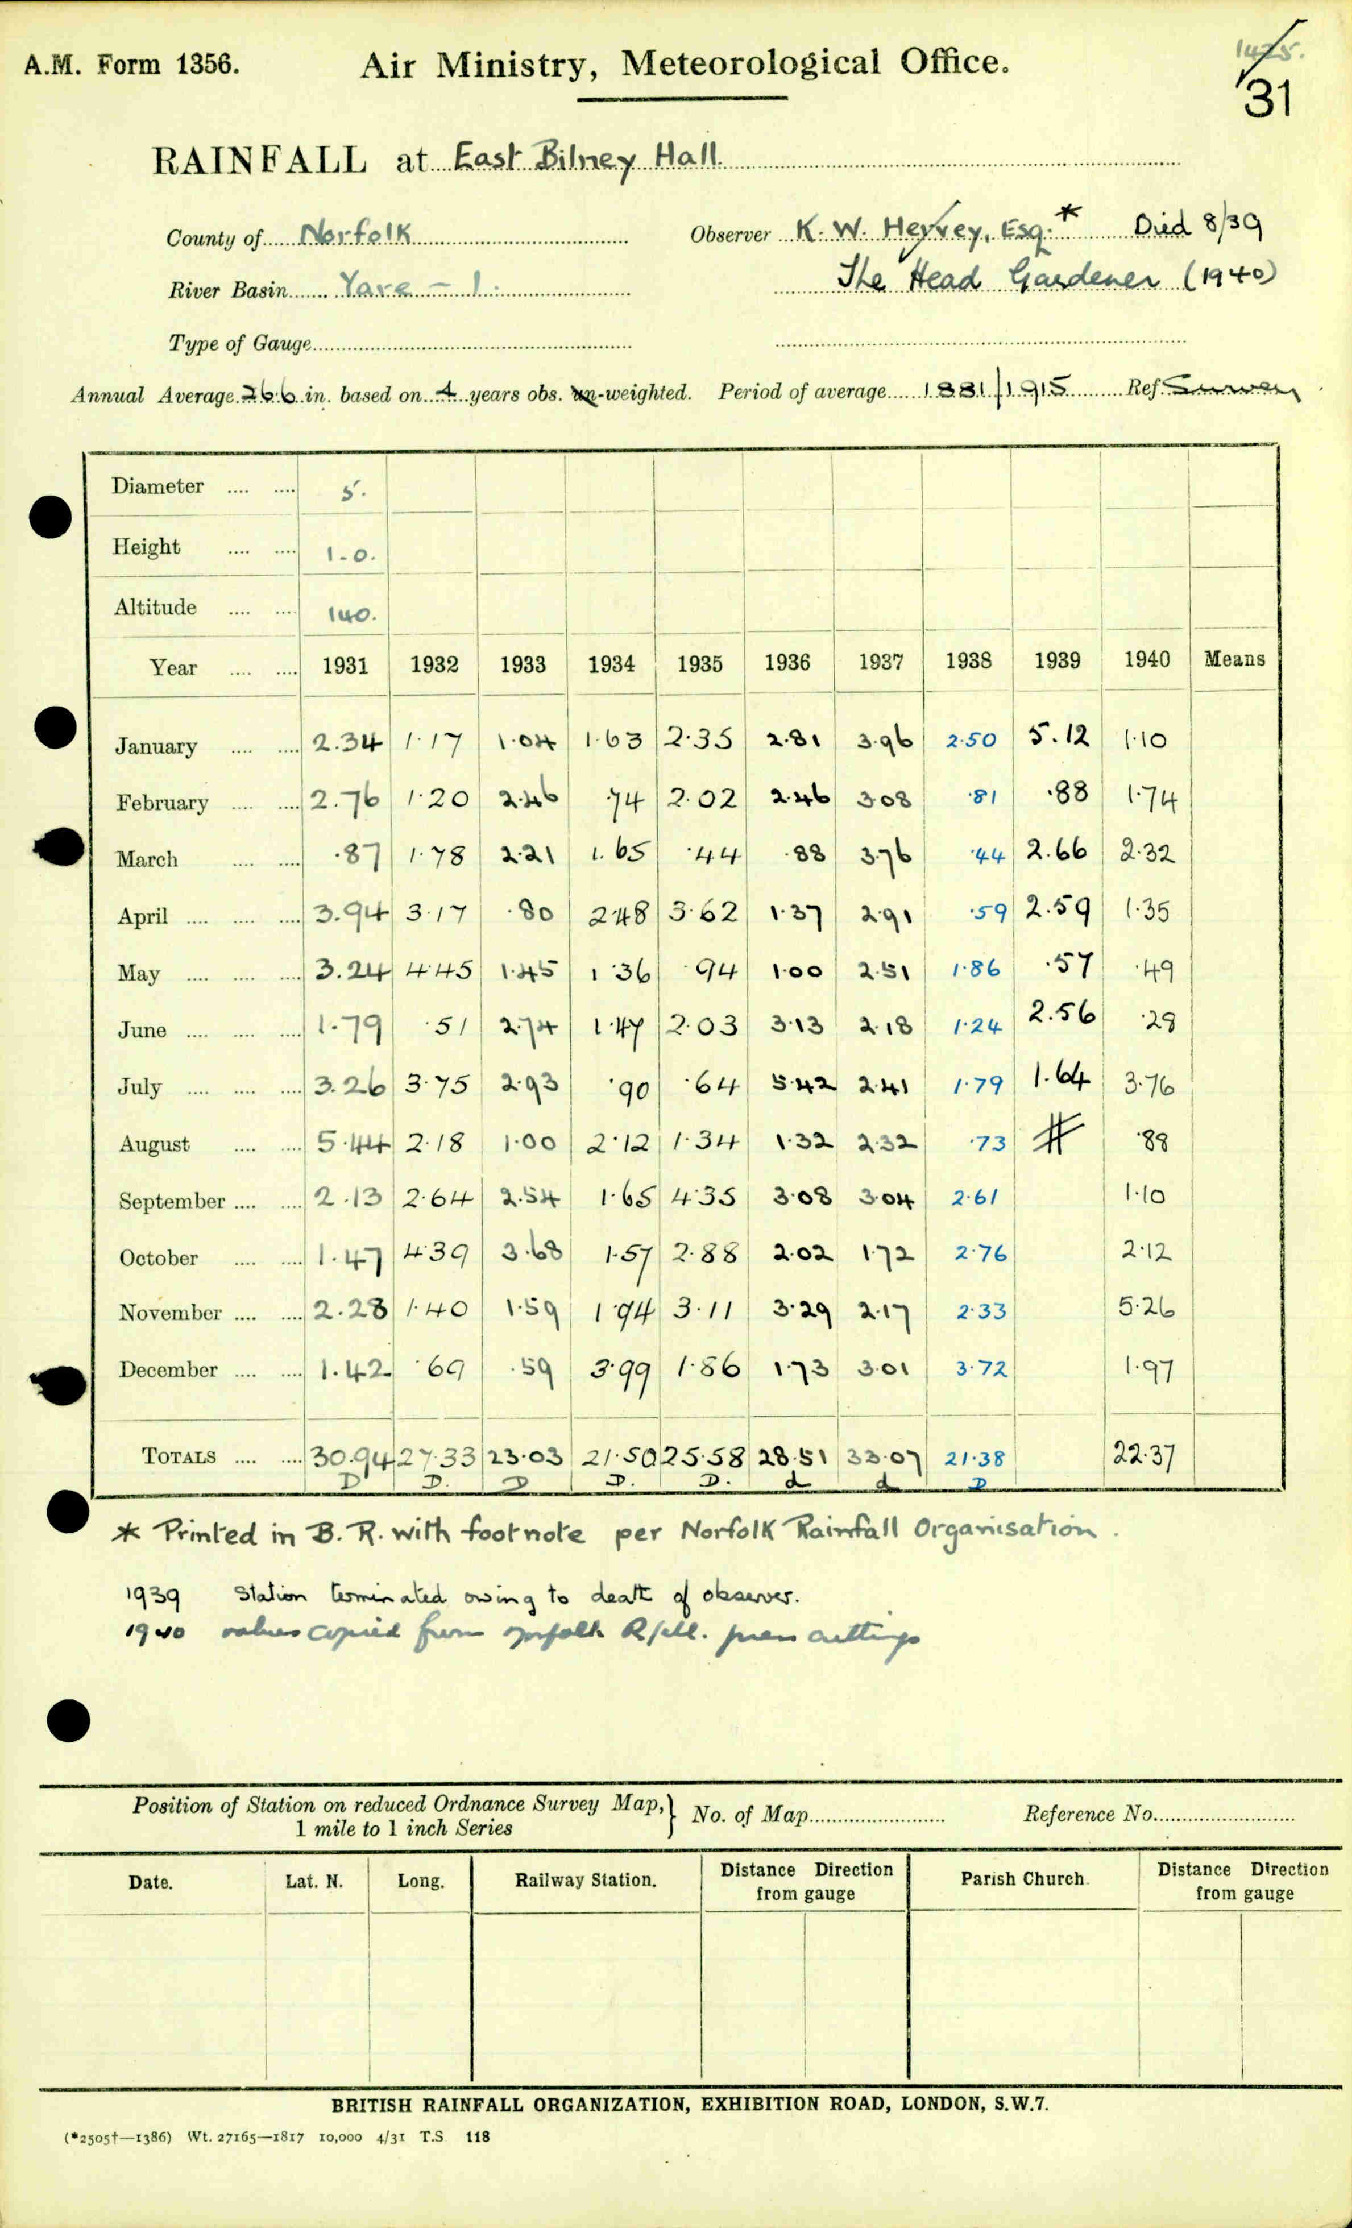 A.M. Form 1356.
Air Ministry, Meteorological Office.
1425.
31
RAINFALL at East Bilney Hall.
County of Norfolk Observer K. W. Hervey, Esq.* Died 8/39
River Basin Yare - 1. The Head Gardener (1940)
Type of Gauge
Annual Average 26.6 in. based on 4 years obs. un-weighted. Period of average 1881/1915 Ref. Survey
Diameter 5.
Height 1-0.
Altitude 140.
Year 1931 1932 1933 1934 1935 1936 1937 1938 1939 1940 Means
January 2.34 1.17 1.04 1.63 2.35 2.81 3.96 2.50 5.12 1.10
February 2.76 1.20 2.46 .74 2.02 2.46 3.08 .81 .88 1.74
March .87 1.78 2.21 1.65 .44 .88 3.76 .44 2.66 2.32
April 3.94 3.17 .80 2.48 3.62 1.37 2.91 .59 2.59 1.35
May 3.24 4.45 1.45 1.36 .94 1.00 2.51 1.86 .57 .49
June 1.79 .51 2.74 1.47 2.03 3.13 2.18 1.24 2.56 .29
July 3.26 3.75 2.93 .90 .64 5.42 2.41 1.79 1.64 3.76
August 5.44 2.18 1.00 2.12 1.34 1.32 2.32 .73 # .88
September 2.13 2.64 2.54 1.65 4.35 3.08 3.04 2.61 1.10
October 1.47 4.39 3.68 1.57 2.88 2.02 1.72 2.76 2.12
November 2.28 1.40 1.59 1.94 3.11 3.29 2.17 2.33 5.26
December 1.42 .69 .59 3.99 1.86 1.73 3.01 3.72 1.97
TOTALS 30.94 27.33 23.03 21.50 25.58 28.51 33.07 21.38 22.37
D D. D D. D. d d D
* Printed in B.R. with footnote per Norfolk Rainfall Organisation.
1939 Station terminated owing to death of observer.
1940 values copied from Norfolk R/fall. press cuttings
Position of Station on reduced Ordnance Survey Map, 1 mile to 1 inch Series } No. of Map Reference No.
Date. Lat. N. Long. Railway Station. Distance Direction from gauge Parish Church. Distance Direction from gauge
BRITISH RAINFALL ORGANIZATION, EXHIBITION ROAD, LONDON, S.W.7.
(*2505†—1386) Wt. 27165—1817 10,000 4/31 T.S. 118